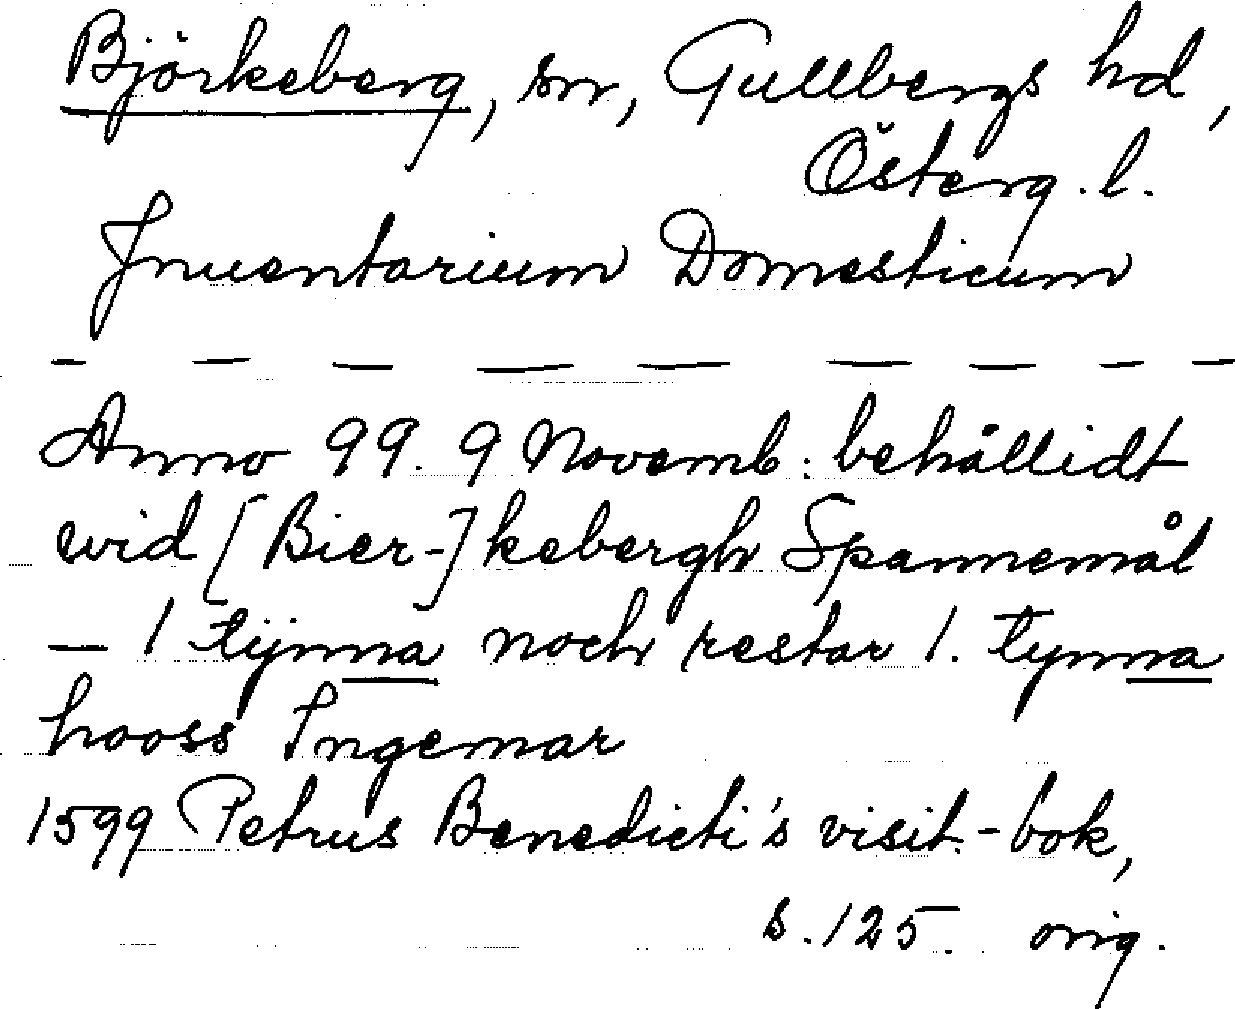 Björkeberg, sn, Gullbergs hd,
Österg. l.
Inuentarium Domesticum
- - - - - - - - -
Anno 99. 9 Novemb: behållidt
wid [Bier-]kebergh Spannemål
— 1 tijnna noch restar 1. tynna
hooss Ingemar
1599 Petrus Benedicti's visit.-bok,
s. 125. orig.